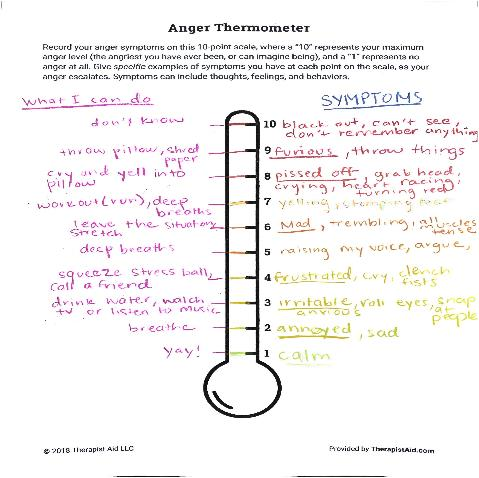 Anger Thermometer
Record your anger symptoms on this 10-point scale, where a "10" represents your maximum
anger level (the angriest you have ever been, or can imagine being), and a "1" represents no
anger at all. Give specific examples of symptoms you have at each point on the scale, as your
anger escalates. Symptoms can include thoughts, feelings, and behaviors.
What I can do
SYMPTOMS
don't know
10 black out, can't see,
don't remember anything
throw pillow, shred
paper
9 furious, throw things
cry and yell into
pillow
8 pissed off, grab head,
crying, heart racing,
turning red
workout (run), deep
breaths
7 yelling, stomping feet
leave the situation
stretch
6 Mad, trembling, all muscles
tense
deep breaths
5 raising my voice, argue,
squeeze stress ball,
call a friend
4 frustrated, cry, clench
fists
drink water, watch
tv or listen to music
3 irritable, roll eyes, snap
anxious
at
people
breathe
2 annoyed, sad
yay!
1 calm
© 2018 Therapist Aid LLC
Provided by TherapistAid.com